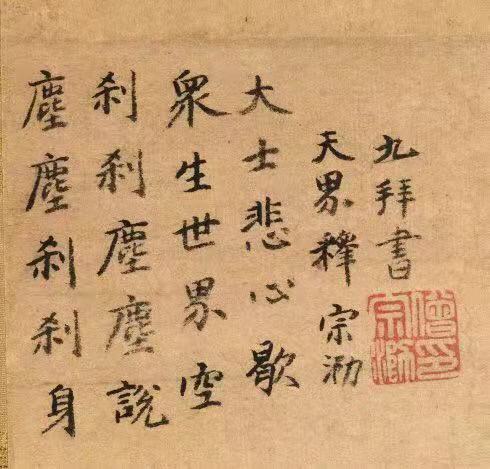 塵塵刹刹身
刹刹塵塵說
衆生世界空
大士悲心歇
天界釋宗泐
九拜書
宗泐
僧印